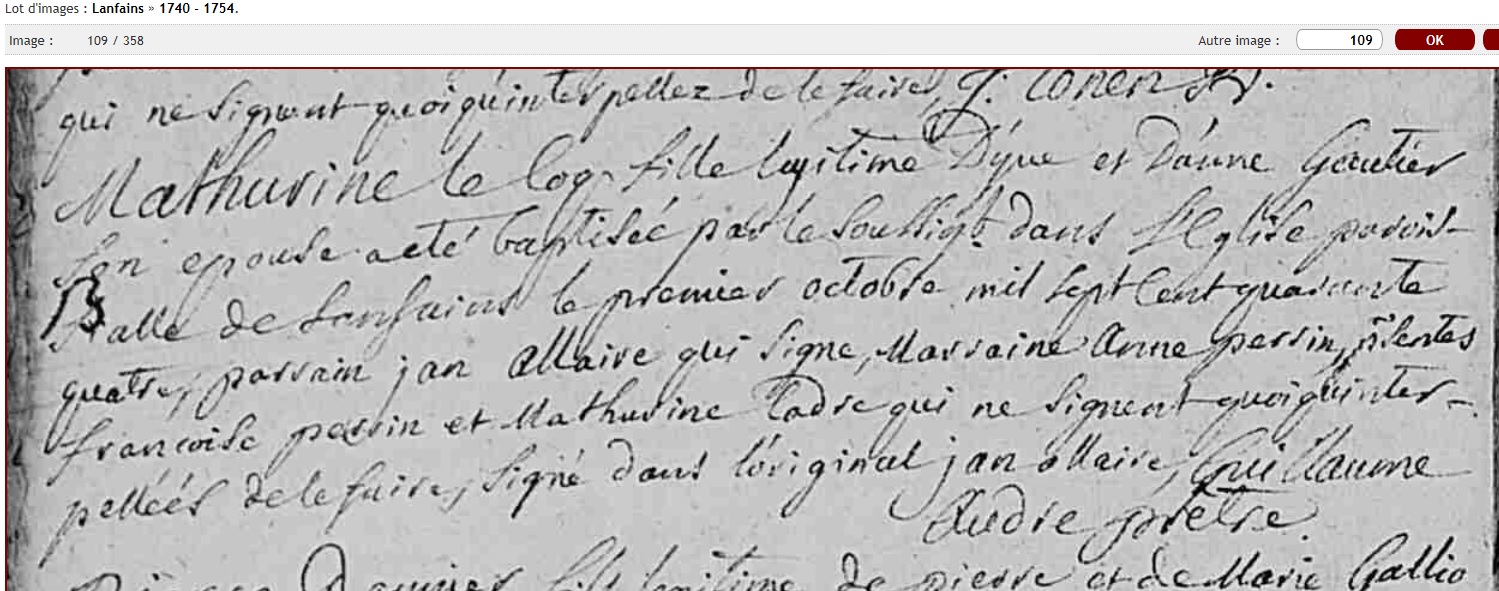 Lot d'images : Lanfains » 1740 - 1754.
Image : 109 / 358 Autre image : 109 OK
qui ne signent quoiqu'interpellez de le faire, G. Conen
Mathurine le Coq fille legitime D'yve et D'anne Gautier
son epouse a eté baptisée par le soussigt. dans l'Eglise parois-
B
sialle de Lanfains le premier octobre mil sept Cent quarante
quatre, parrain jan allaire qui signe, Marraine Anne perrin, p̃sentes
francoise perrin et Mathurine Cadre qui ne signent quoiqu'inter-
pellées de le faire, signé dans l'original jan allaire, Guillaume
Audre prêtre
fils legitime de pierre et de Marie Gallio